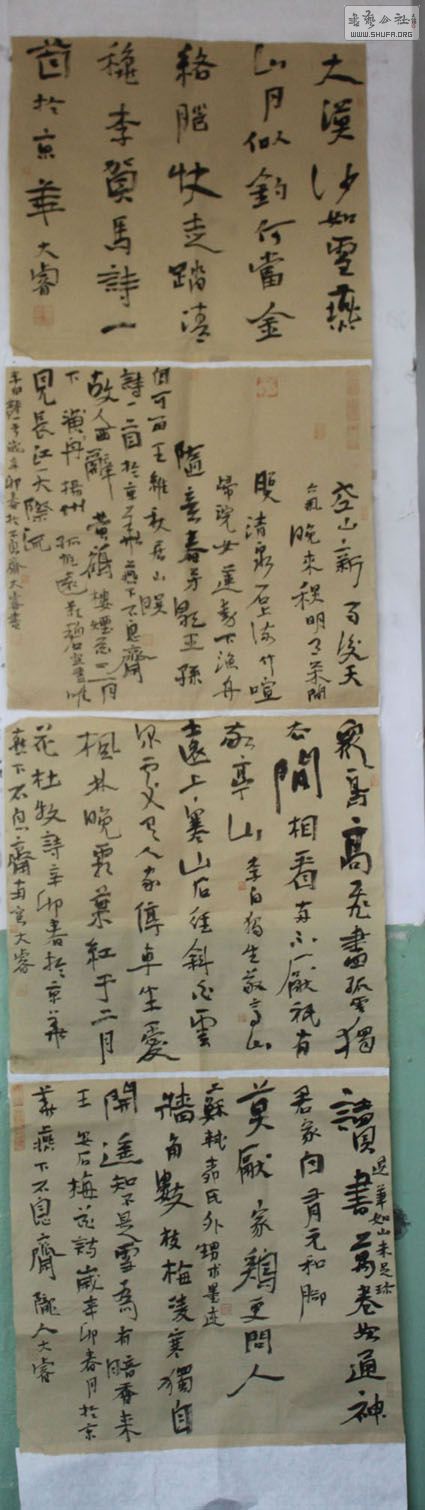 書藝公社
WWW.SHUFA.ORG
大漠沙如雪燕
山月似鈎何當金
絡腦快走踏清
穐李賀馬詩一
首於京華大睿
空山新雨後天
氣晚來秋明月松間
照清泉石上流竹喧
歸浣女蓮動下漁舟
隨意春芳歇王孫
自可留王維秋居山暝
詩一首於京華燕下不息齋
故人西辭黃鶴樓煙花三月
下揚州孤帆遠影碧空盡唯
見長江天際流
李白詩一首歲辛卯春於不息齋大睿書
衆鳥高飛盡孤獨
去閒相看兩不厭祇有
敬亭山李白獨坐敬亭山
遠上寒山石徑斜白雲
深處有人家停車坐愛
楓林晚霜葉紅于二月
花杜牧詩辛卯春於京華
燕下不息齋南窗大睿
退筆如山未足珍
讀書萬卷始通神
君家自有元和腳
莫厭家鷄更問人
蘇軾氏外甥求墨迹
牆角數枝梅凌寒獨自
開遙知不是雪為有暗香來
王安石梅花詩歲辛卯春月於京
華燕下不息齋隴人大睿